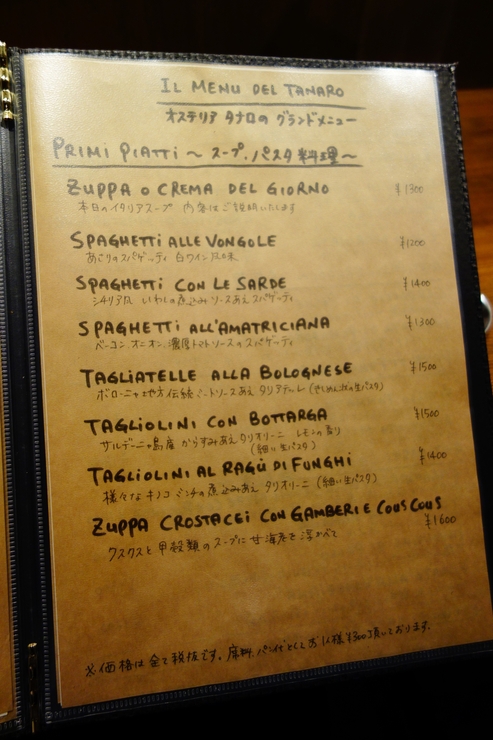 IL MENU DEL TANARO
オステリア タナロの グランドメニュー
PRIMI PIATTI ~ スープ、パスタ 料理 ~
ZUPPA O CREMA DEL GIORNO ¥1300
本日のイタリアスープ 内容はご説明いたします
SPAGHETTI ALLE VONGOLE ¥1200
あさりのスパゲッティ 白ワイン風味
SPAGHETTI CON LE SARDE ¥1400
シチリア風 いわしの煮込みソースあえ スパゲッティ
SPAGHETTI ALL'AMATRICIANA ¥1300
ベーコン、オニオン、濃厚トマトソースのスパゲッティ
TAGLIATELLE ALLA BOLOGNESE ¥1500
ボローニャ地方伝統ミートソースあえ タリアテッレ (きしめん状の生パスタ)
TAGLIOLINI CON BOTTARGA ¥1500
サルデーニャ島産 からすみあえ タリオリーニ レモンの香り
(細い生パスタ)
TAGLIOLINI AL RAGÙ DI FUNGHI ¥1400
様々なキノコ ミンチの煮込みあえ タリオリーニ (細い生パスタ)
ZUPPA CROSTACEI CON GAMBERI E COUS COUS
¥1600
クスクスと甲殻類のスープに甘海老を浮かべて
※価格は全て税抜です。席料、パン代としてお1人様¥300頂いております。